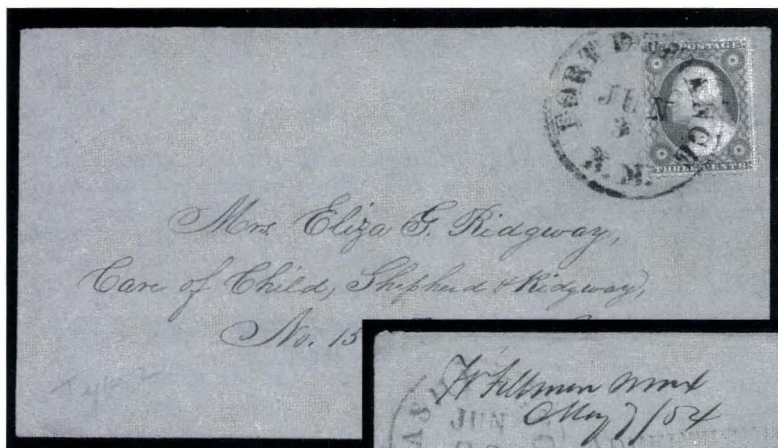 FORT DEFIANCE
JUN
3
N.M.
U.S. POSTAGE
THREE CENTS
Mrs. Eliza G. Ridgway,
Care of Child, Shepherd & Ridgway,
No. 15
Type 2
Ft Fillmore N mex
May 7/54
JUN